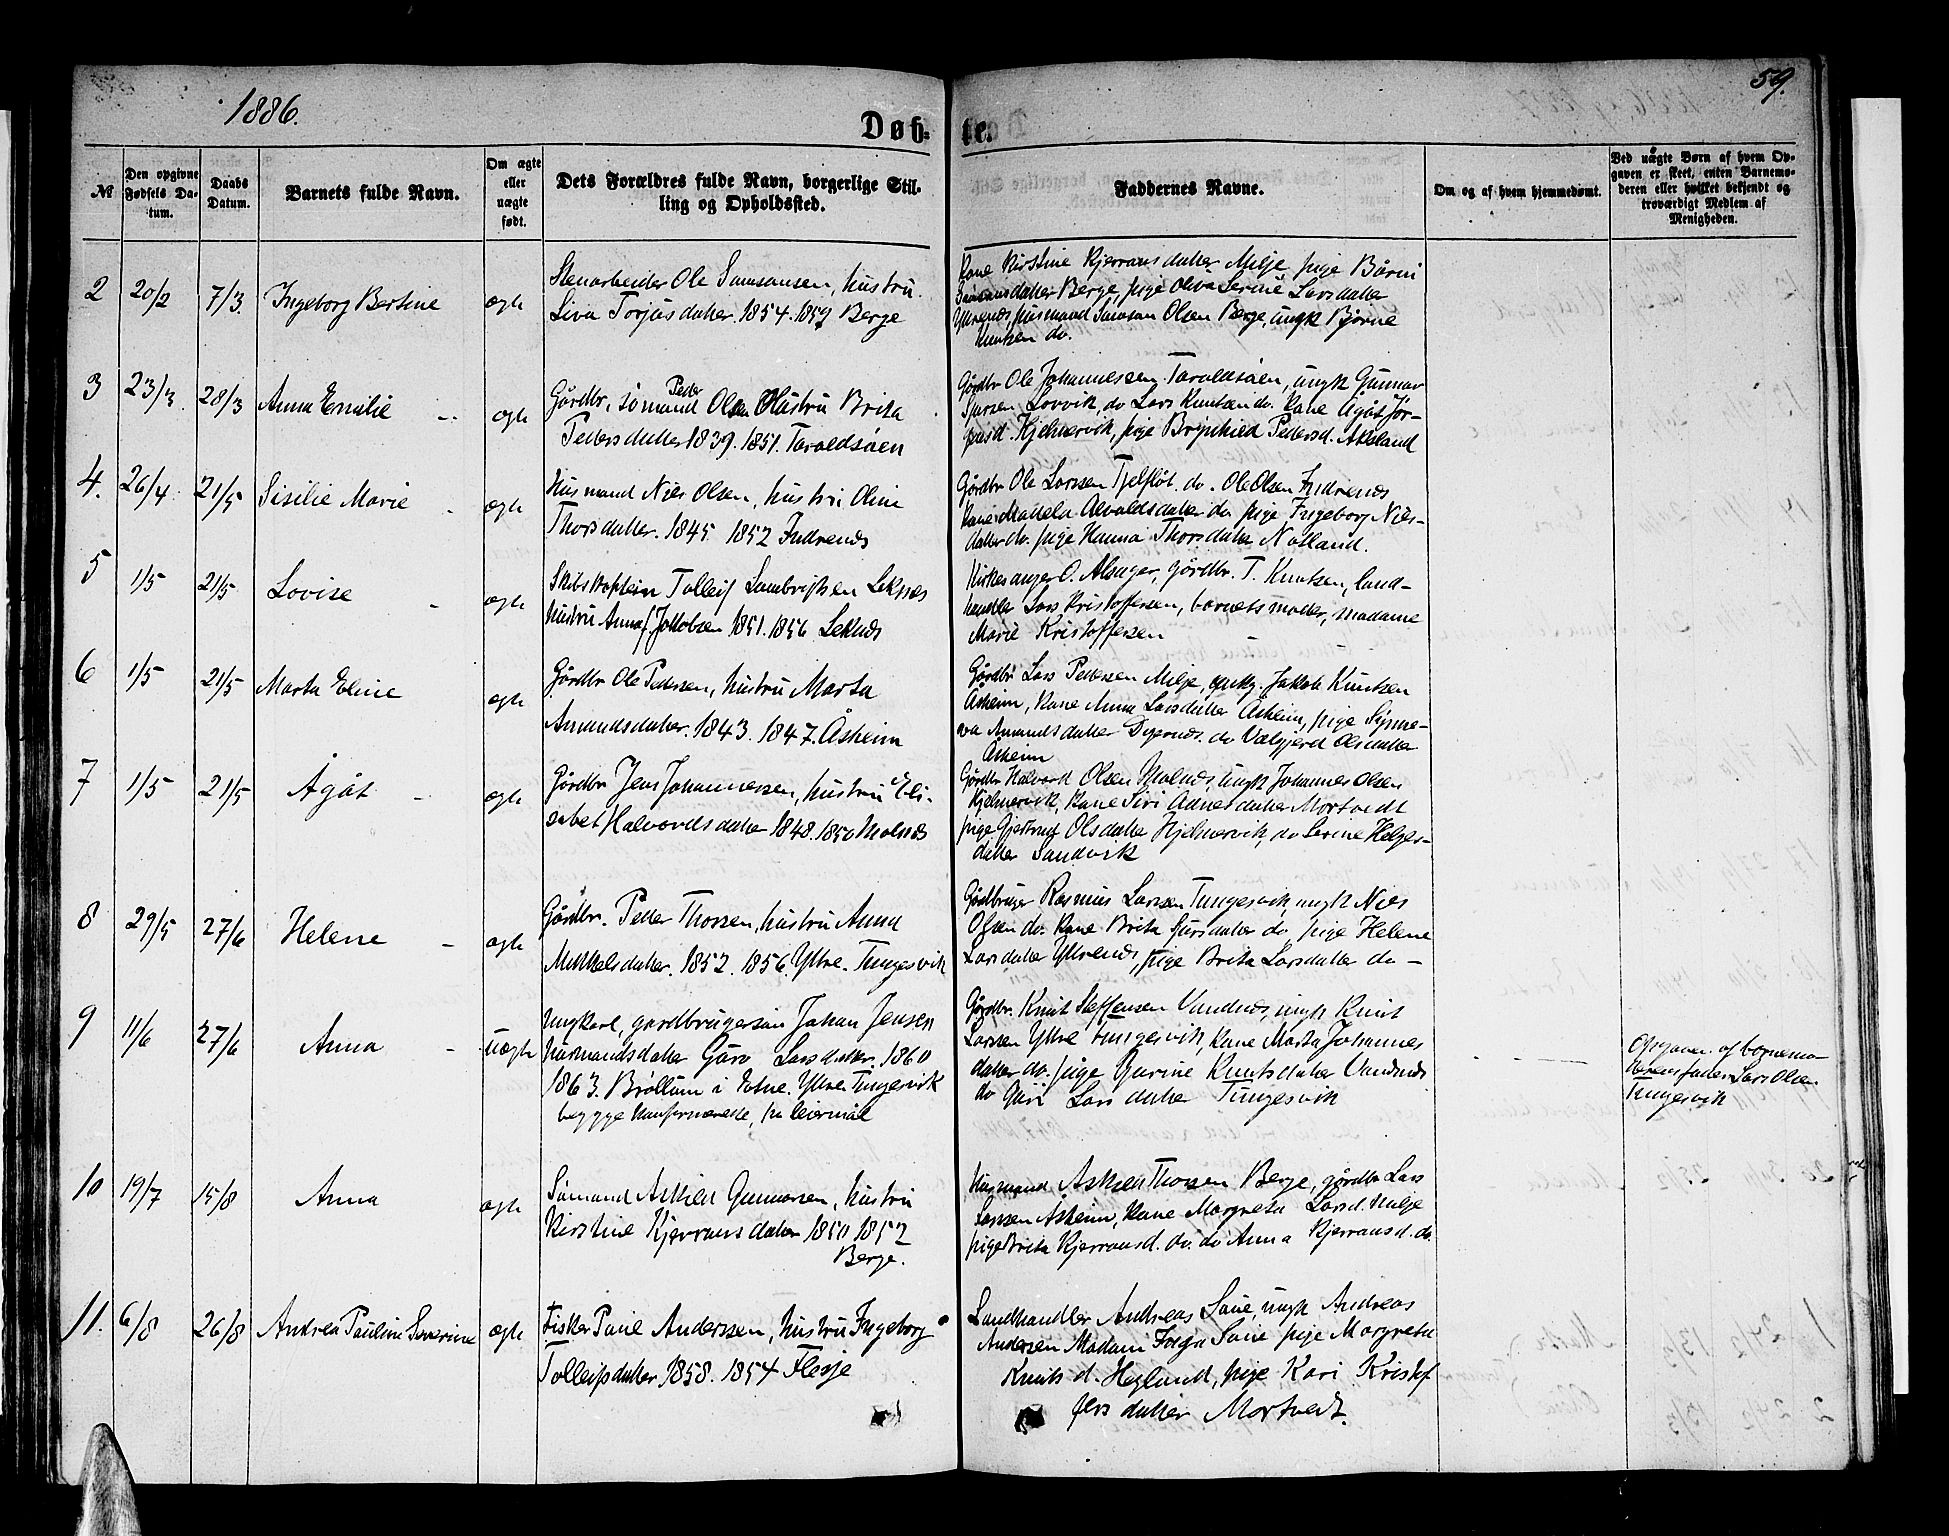 1886.
59.
Døb-
te.
№
Den opgivne Fødsels Da-
tum.
Daabs Datum.
Barnets fulde Navn.
Om ægte eller uægte født.
Dets Forældres fulde Navn, borgerlige Stil-
ling og Opholdssted.
Faddernes Navne.
Om og af hvem hjemmedøbt.
Ved uægte Børn af hvem Op-
gaven er skeet, enten Barnemo-
deren eller hvilket bekjendt og
troværdigt Medlem af
Menigheden.
2 20/2 7/3. Ingeborg Bertine ægte
Stenarbeider Ole Samsonsen, hustru
Siva Torjusdatter. 1854. 1859 Berge
Kone Kirstine Kjerransdatter Milje, pige Børni
Samsonsdatter Berge, pige Oliva Serine Larsdatter
Ytrenes, husmand Samson Olsen Berge, ungk Bjørne
Knutsen do.
3 23/3 28/3 Anna Emilie ægte
Gårdbr, sømand Peder Olsen Hustru Brita
Pedersdatter 1839. 1851. Taraldsøen
Gårdbr Ole Johannessen Taraldsøen, ungk Gunnar
Sjursen Løvvik, do Lars Knutsen do. Kone Ågåt Jør-
gensd. Kjelnervik, pige Brynhild Pedersd. Aksland
4. 26/4. 21/5 Sisilie Marie ægte
Husmand Nils Olsen, hustru Oline
Thorsdatter. 1845 1852 Indrenes
Gårdbr Ole Larssen Tjelflåt. do. Ole Olsen Indrenes
Kone Madela Alvaldsdatter do pige Ingeborg Nils-
datter do. pige Hanna Thorsdatter Nøtland.
5 1/5 21/5 Lovise ægte
Skibskaptein Tolleif Lambrigtsen Leknes
hustru Anna f. Jakobsen 1851. 1856 Leknes
Kirkesanger O. Alsager, gårdbr. T. Knutsen, land-
handler Lars Kristoffersen, barnets moder, madame
Marie Kristoffersen
6 1/5 21/5 Marta Eline ægte
Gårdbr Ole Pedersen, hustru Marta
Amundsdatter. 1843. 1847. Åsheim
Gårdbr Lars Pedersen Milje, ungk. Jakob Knutsen
Åsheim, Kone Anna Larsdatter Åsheim, pige Synne-
va Amundsdatter Dyrnes. do Valgjerd Olsdatter
Åsheim
7 1/5 21/5 Ågåt - ægte
Gårdbr Jens Johannessen, hustru Eli-
sabet Halvordsdatter 1848. 1850 Molnes
Gårdbr Halvord Olsen Molnes, ungk Johannes Olsen
Kjelnervik, Kone Siri Adnesdatter Mortvedt
pige Gjertrud Olsdatter Kjelnervik, do Serine Helges-
datter Sandvik
8 29/5 27/6 Helene - ægte
Gårdbr. Peder Thorsen, hustru Anna
Mikkelsdatter. 1852. 1856. Ytre. Tungesvik
Gårdbruger Rasmus Larsen Tungesvik, ungk Nils
Olsen do. Kone Brita Sjursdatter do pige Helene
Larsdatter Ytrenes, pige Brita Larsdatter do -
9 11/6 27/6 Anna - uægte
Ungkarl, gardbrugersøn Johan Jensen
Larsdatter. 1860
1863. Brøllum i Etne. Ytre Tungesvik
begge leiermål
Gårdbr. Knut Steffensen Vandnes, ungk Knut
Larsen Ytre Tungesvik, Kone Marta Johannes
datter do. pige Gurine Knutsdatter Vandnes
do Guri Larsdatter Tungesvik
Opgaven af barnemo-
derens fader Lars Olsen
Tungesvik
10 19/7 15/8 Anna ægte
Sømand Askild Gunnarsen, hustru
Kirstine Kjerransdatter 1850 1852
Berge.
Husmand Askild Thorsen Berge, gårdbr Lars
Larssen Åsheim, Kone Margreta Larsd. Milje
pige Brita Kjerransd. do. do Anna Kjerransd. do.
11. 6/8 26/8 Andrea Pauline Severine ægte
Fisker Paul Anderssen, hustru Ingeborg
Tolleifsdatter 1858. 1854 Flesje
Landhandler Andreas Saue, ungk Andreas
Andersen Madam Inga Saue pige Margreta
Knutsd. Heglund, pige Kari Kristof
fersdatter Mortvedt.